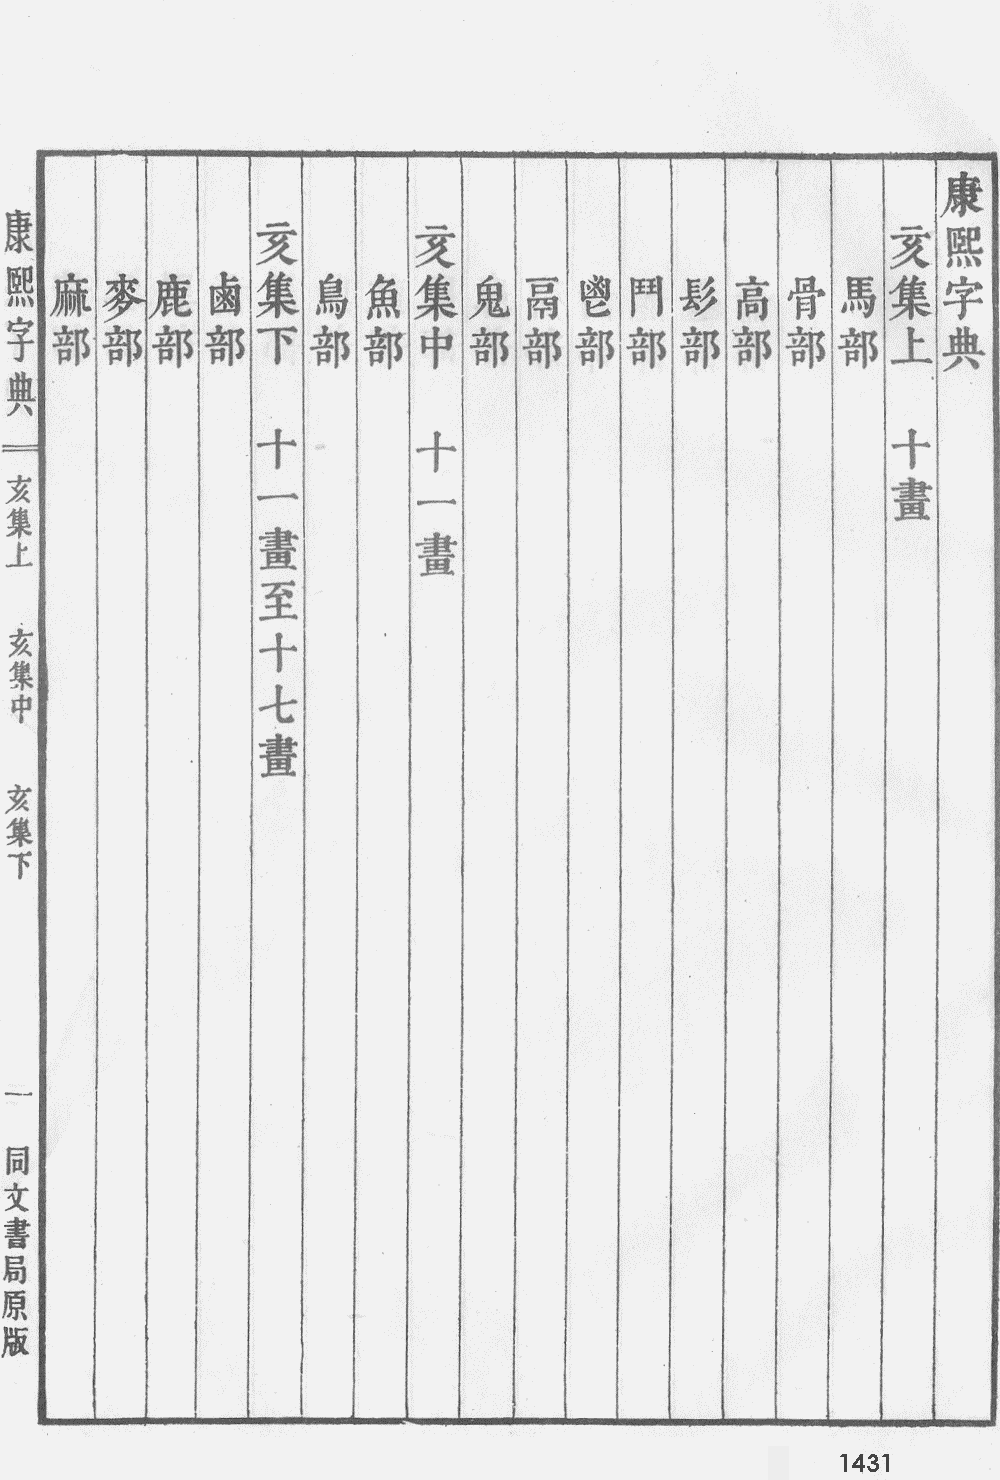 康熙字典
亥集上 十畫
馬部
骨部
高部
髟部
鬥部
鬯部
鬲部
鬼部
亥集中 十一畫
魚部
鳥部
亥集下 十一畫至十七畫
鹵部
鹿部
麥部
麻部
康熙字典 亥集上 亥集中 亥集下 一 同文書局原版
1431